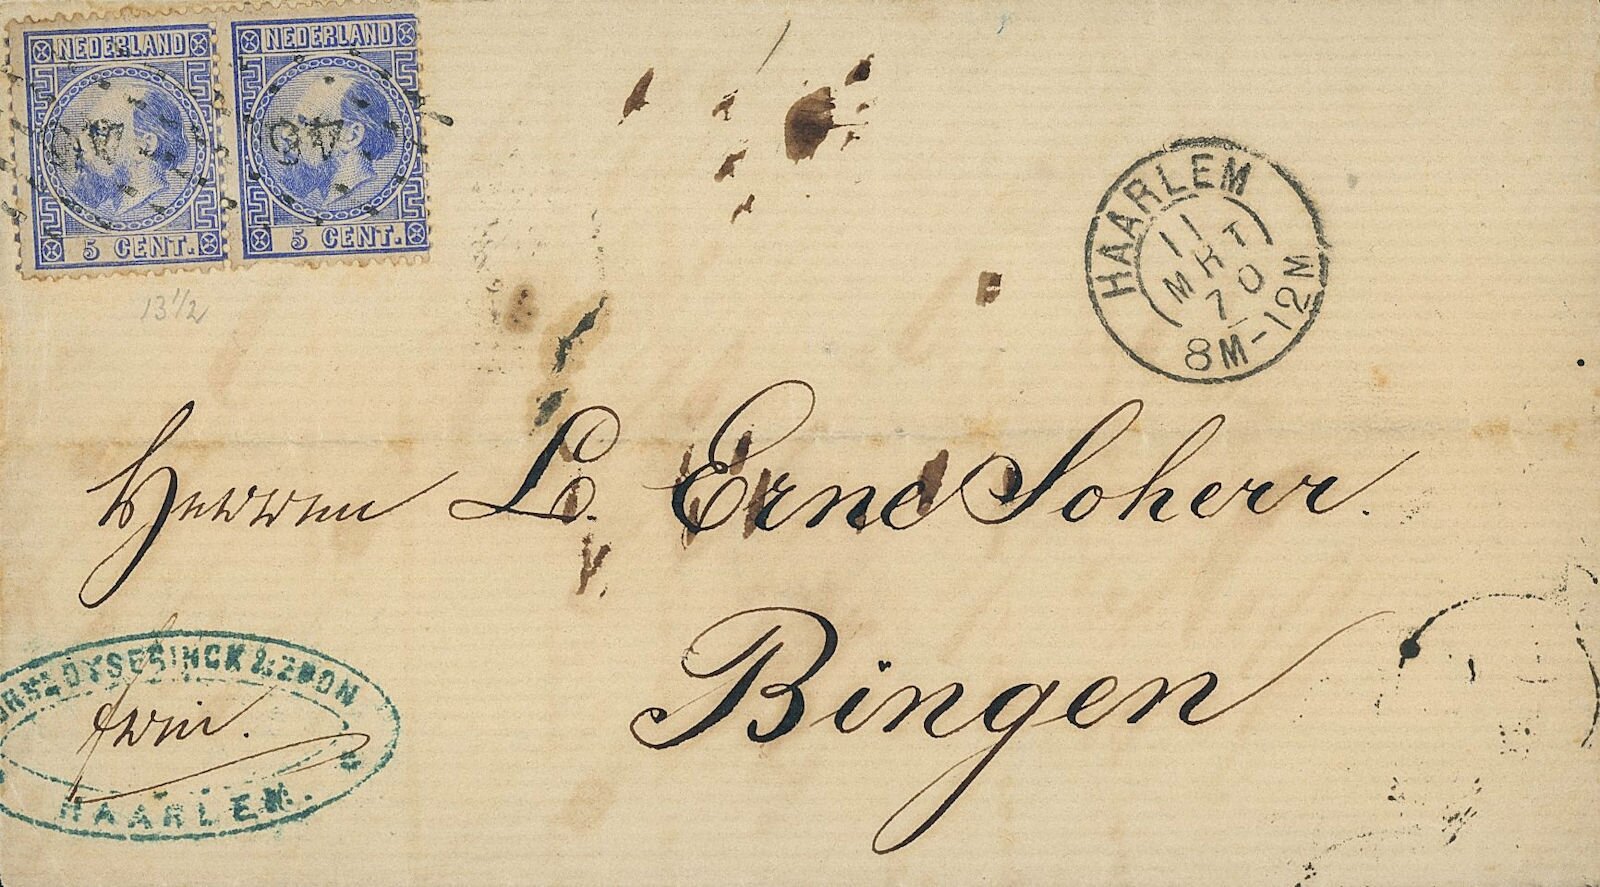 NEDERLAND
5 CENT.
NEDERLAND
46
5 CENT.
13 1/2
HAARLEM
11
MRT
70
8M-12M
Herren L. Erne Soherr.
Bingen
HAARLEM.